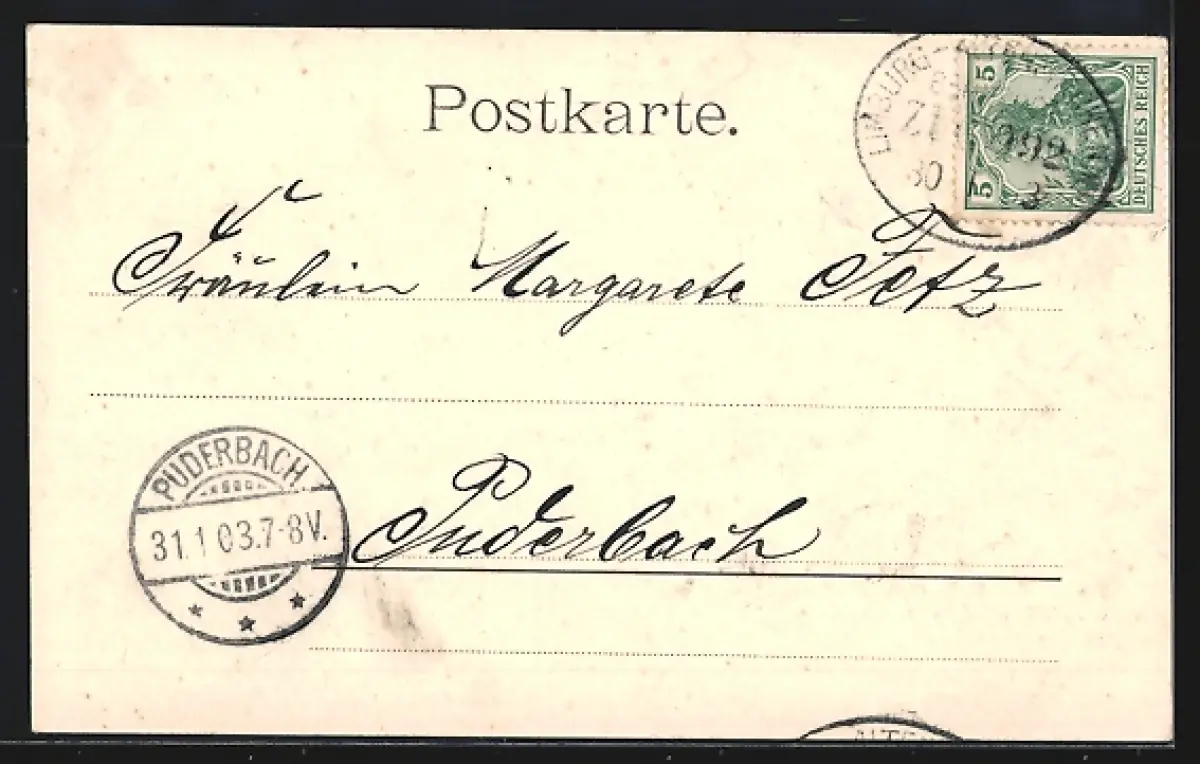 Postkarte.
LIMBURG-
5 5
DEUTSCHES REICH
30
Fräulein Margarete Fetz
PUDERBACH.
31.1 03.7-8V.
Puderbach